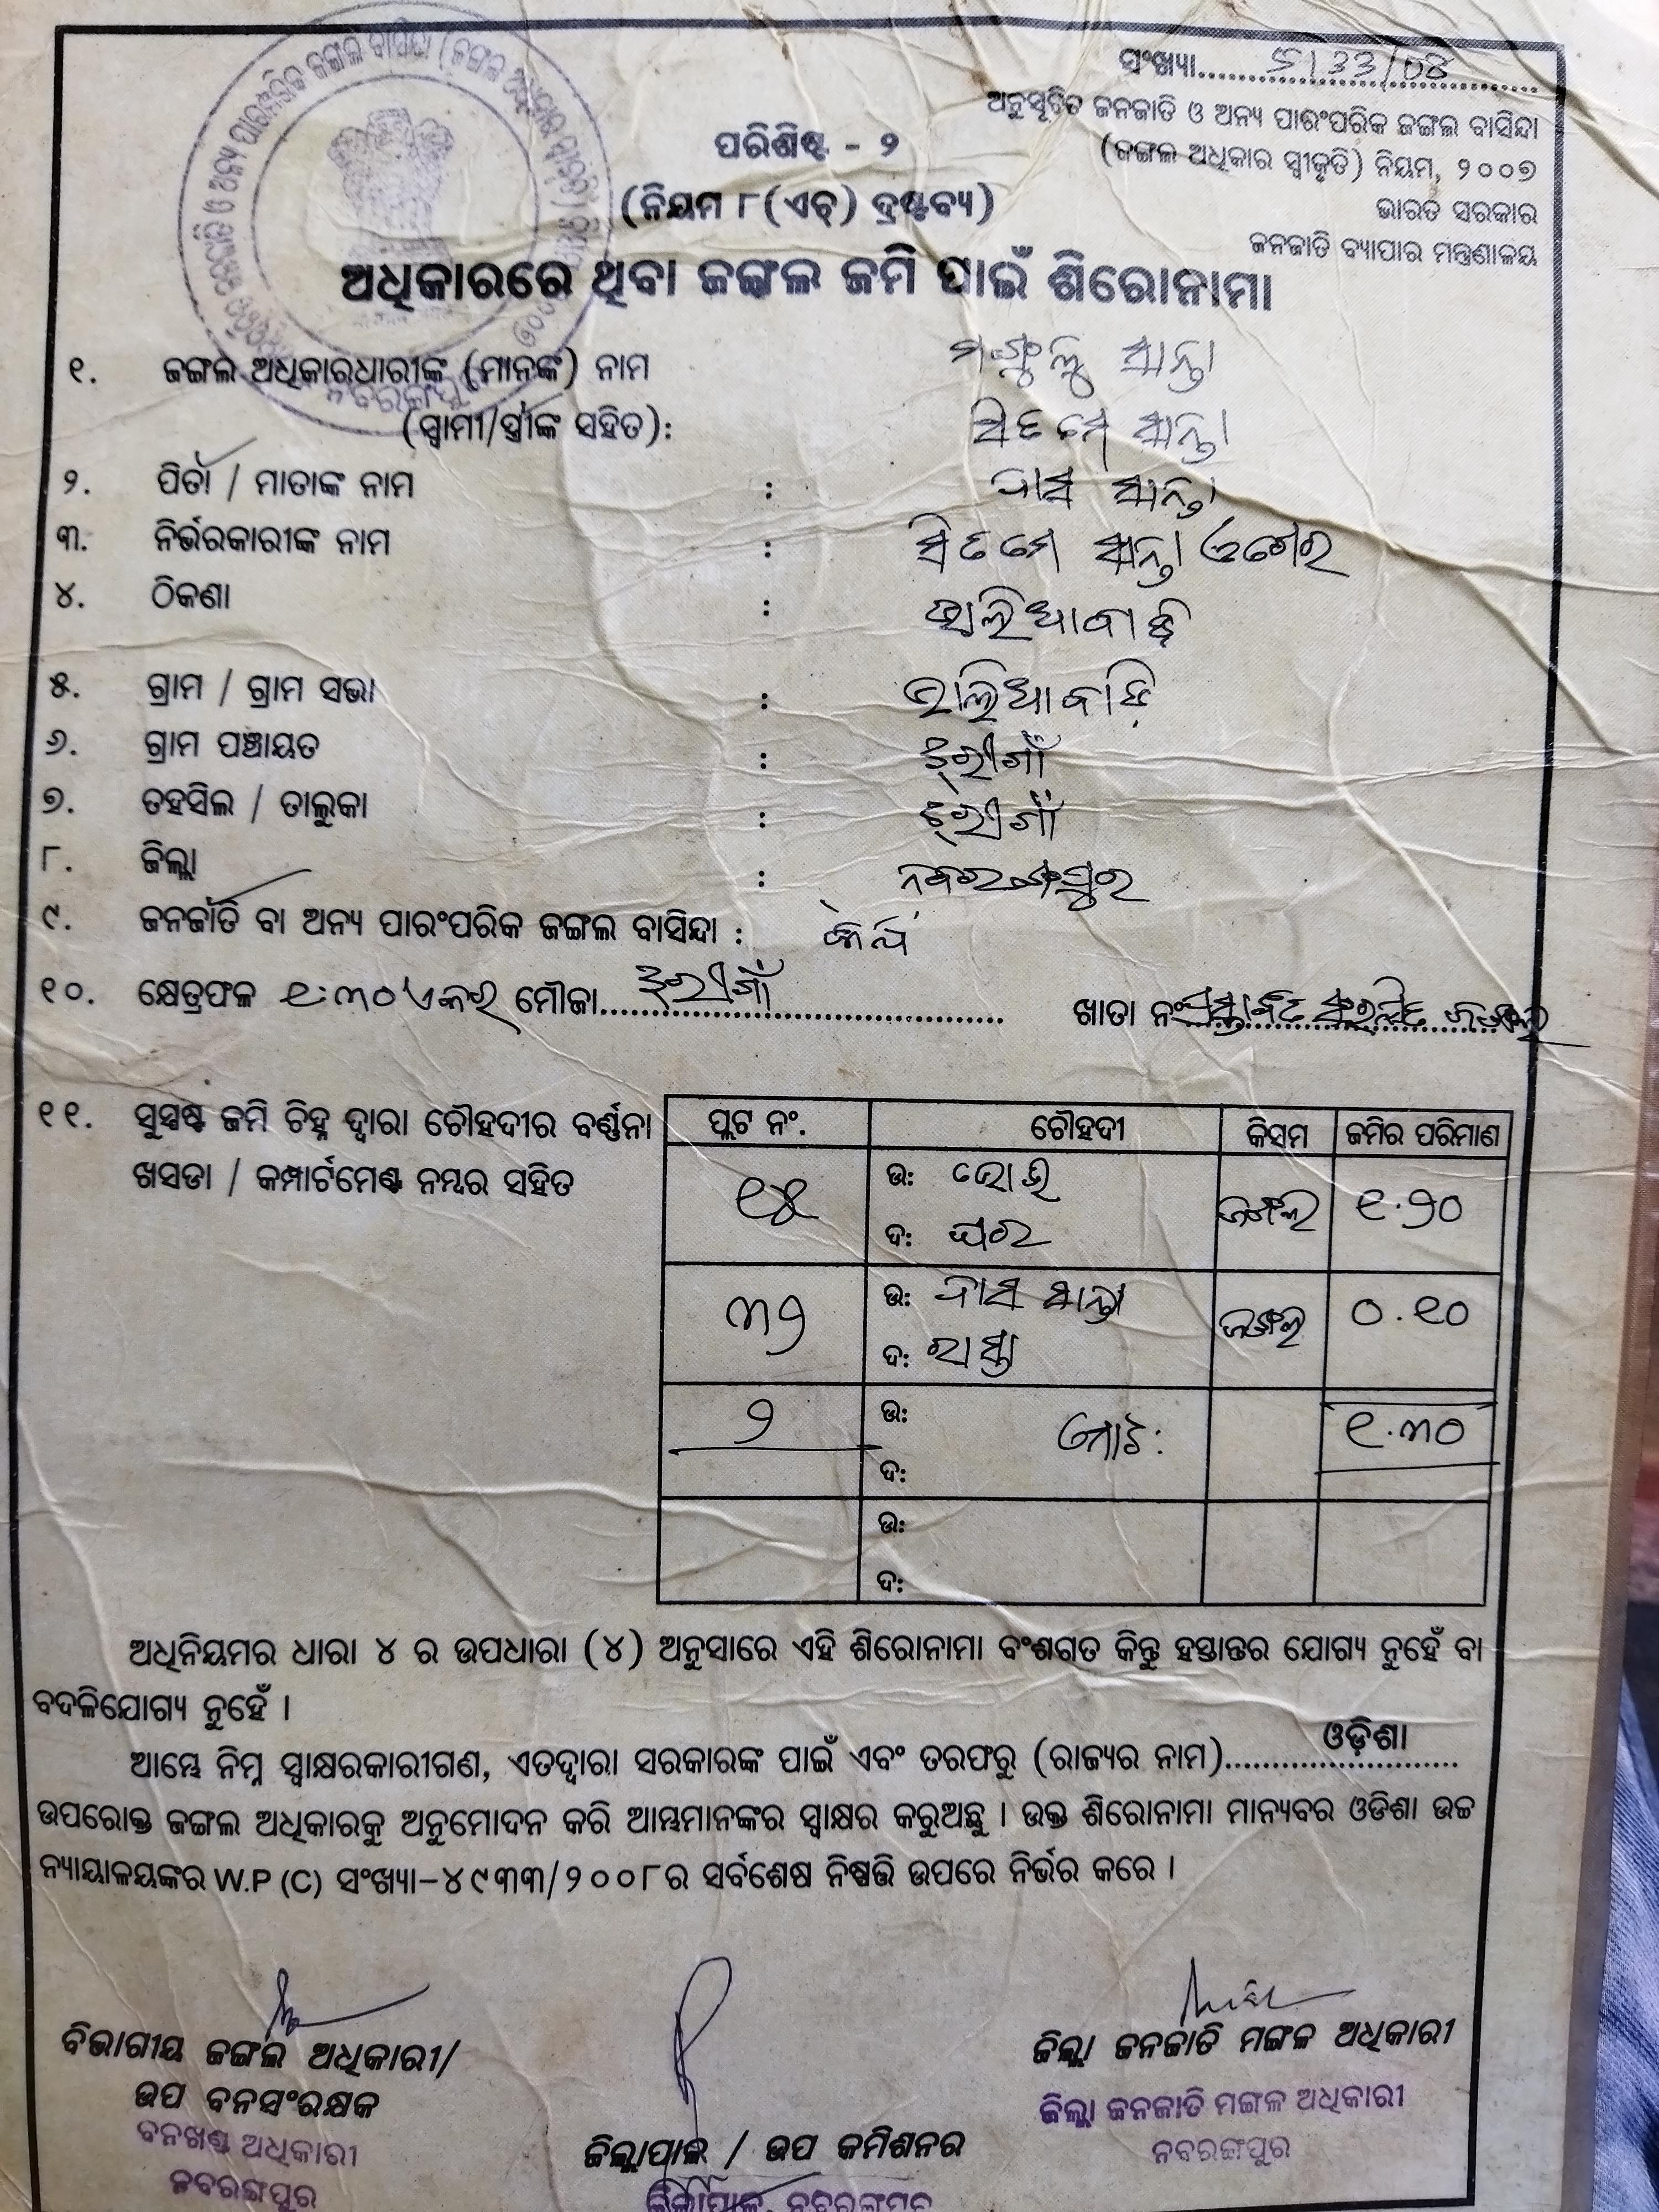 ସଂଖ୍ୟା
ଅନୁସୂଚିତ ଜନଜାତି ଓ ଅନ୍ୟ ପାରଂପରିକ ଜଙ୍ଗଲ ବାସିନ୍ଦା
(ଜଙ୍ଗଲ ଅଧିକାର ସ୍ୱୀକୃତି) ନିୟମ, ୨୦୦୭
ଭାରତ ସରକାର
ଜନଜାତି ବ୍ୟାପାର ମନ୍ତ୍ରଣାଳୟ
ପରିଶିଷ୍ଟ - ୨
(ନିୟମ ୮(ଏଚ୍) ଦ୍ରଷ୍ଟବ୍ୟ)
ଅଧିକାରରେ ଥିବା ଜଙ୍ଗଲ ଜମି ପାଇଁ ଶିରୋନାମା
୧. ଜଙ୍ଗଲ ଅଧିକାରଧାରୀଙ୍କ (ମାନଙ୍କ) ନାମ ସାନ୍ତା
(ସ୍ୱାମୀ/ସ୍ତ୍ରୀଙ୍କ ସହିତ): ସାନ୍ତା
୨. ପିତା / ମାତାଙ୍କ ନାମ : ଦାସ ସାନ୍ତା
୩. ନିର୍ଭରକାରୀଙ୍କ ନାମ : ସାନ୍ତା
୪. ଠିକଣା :
୫. ଗ୍ରାମ / ଗ୍ରାମ ସଭା :
୬. ଗ୍ରାମ ପଞ୍ଚାୟତ : ଝରୀଗାଁ
୭. ତହସିଲ / ତାଲୁକା : ଝରୀଗାଁ
୮. ଜିଲ୍ଲା : ନବରଙ୍ଗପୁର
୯. ଜନଜାତି ବା ଅନ୍ୟ ପାରଂପରିକ ଜଙ୍ଗଲ ବାସିନ୍ଦା :
୧୦. କ୍ଷେତ୍ରଫଳ ୧.୩୦ ଏକର ମୌଜା ଝରୀଗାଁ ଖାତା ନଂ ପ୍ରସ୍ତାବିତ ସଂରକ୍ଷିତ ଜଙ୍ଗଲ
୧୧. ସୁସ୍ପଷ୍ଟ ଜମି ଚିହ୍ନ ଦ୍ୱାରା ଚୌହଦୀର ବର୍ଣ୍ଣନା
ଖସଡା / କମ୍ପାର୍ଟମେଣ୍ଟ ନମ୍ବର ସହିତ
ପ୍ଲଟ ନଂ. ଚୌହଦୀ କିସମ ଜମିର ପରିମାଣ
୧୫ ଉ: ଦ: ଘର ଜଙ୍ଗଲ ୧.୨୦
୩୨ ଉ: ଦାସ ସାନ୍ତା ଦ: ରାସ୍ତା ଜଙ୍ଗଲ ୦.୧୦
୨ ଉ: ଦ: ମୋଟ: ୧.୩୦
ଉ:
ଦ:
ଅଧିନିୟମର ଧାରା ୪ ର ଉପଧାରା (୪) ଅନୁସାରେ ଏହି ଶିରୋନାମା ବଂଶଗତ କିନ୍ତୁ ହସ୍ତାନ୍ତର ଯୋଗ୍ୟ ନୁହେଁ ବା
ବଦଳିଯୋଗ୍ୟ ନୁହେଁ ।
ଆମ୍ଭେ ନିମ୍ନ ସ୍ୱାକ୍ଷରକାରୀଗଣ, ଏତଦ୍ୱାରା ସରକାରଙ୍କ ପାଇଁ ଏବଂ ତରଫରୁ (ରାଜ୍ୟର ନାମ) ଓଡ଼ିଶା
ଉପରୋକ୍ତ ଜଙ୍ଗଲ ଅଧିକାରକୁ ଅନୁମୋଦନ କରି ଆମ୍ଭମାନଙ୍କର ସ୍ୱାକ୍ଷର କରୁଅଛୁ । ଉକ୍ତ ଶିରୋନାମା ମାନ୍ୟବର ଓଡିଶା ଉଚ୍ଚ
ନ୍ୟାୟାଳୟଙ୍କର W.P (C) ସଂଖ୍ୟା–୪୯୩୩/୨୦୦୮ର ସର୍ବଶେଷ ନିଷ୍ପତ୍ତି ଉପରେ ନିର୍ଭର କରେ ।
ବିଭାଗୀୟ ଜଙ୍ଗଲ ଅଧିକାରୀ/
ଉପ ବନସଂରକ୍ଷକ
ବନଖଣ୍ଡ ଅଧିକାରୀ
ନବରଙ୍ଗପୁର
ଜିଲ୍ଲାପାଳ / ଉପ କମିଶନର
ଜିଲ୍ଲାପାଳ, ନବରଙ୍ଗପୁର
ଜିଲ୍ଲା ଜନଜାତି ମଙ୍ଗଳ ଅଧିକାରୀ
ଜିଲ୍ଲା ଜନଜାତି ମଙ୍ଗଳ ଅଧିକାରୀ
ନବରଙ୍ଗପୁର